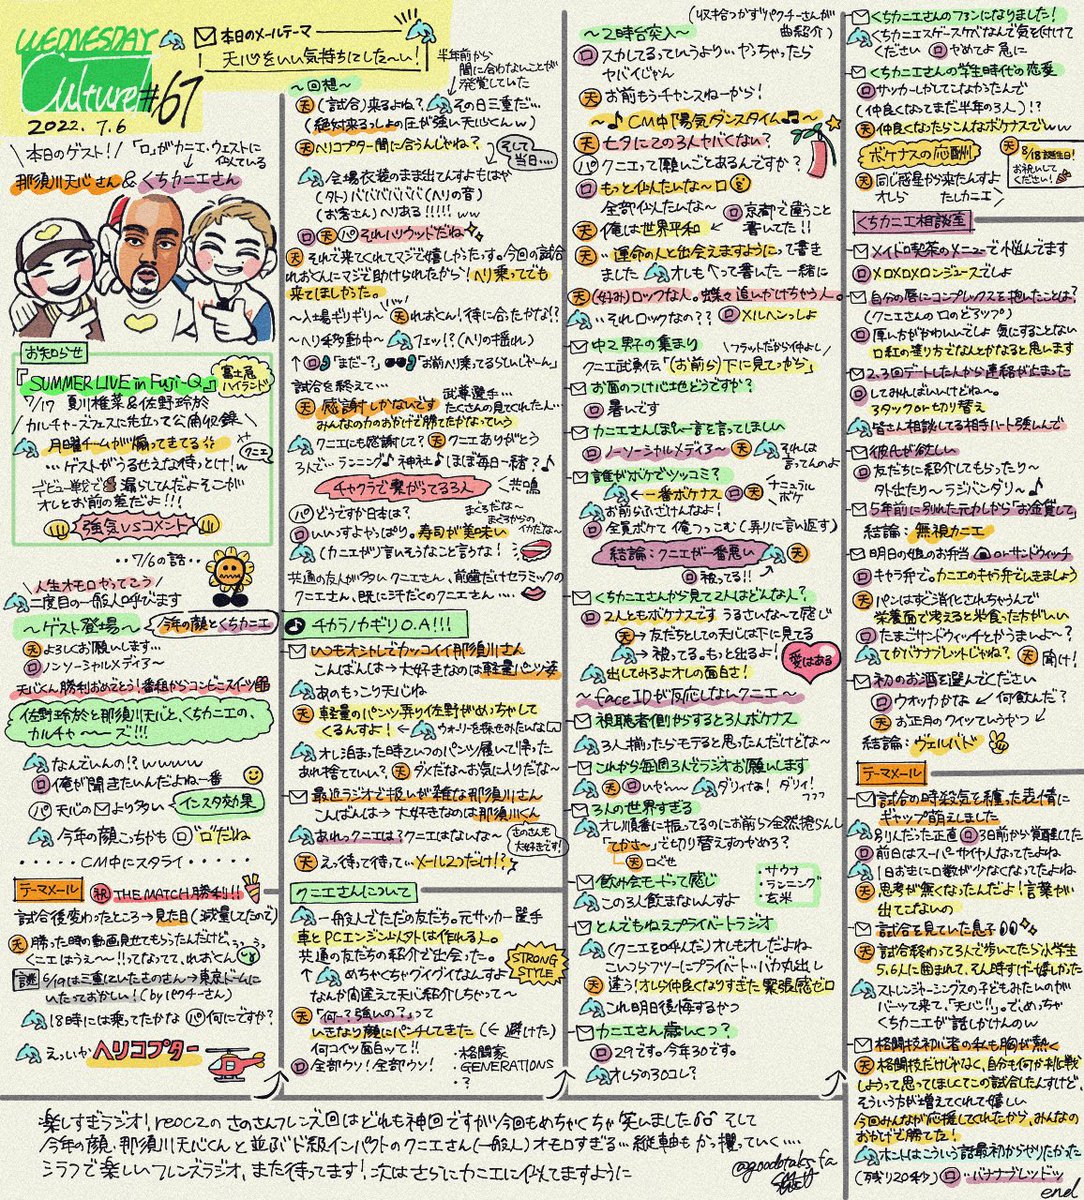 WEDNESDAY
Culture #67
2022. 7. 6
本日のメールテーマ
天心をいい気持ちにした〜い!
\本日のゲスト!/
「ロ」がカニエ・ウェストに
似ている
那須川天心さん & くちカニエさん
お知らせ
『SUMMER LIVE in Fuji-Q』
富士急
ハイランド
7/17 夏川椎菜&佐野玲於
カルチャーズフェスに先立って公開収録
月曜チームが煽ってきてる
…ゲストがうるせえな待っとけ!w
オレとお前の差だよ!!!
強気VSコメント
‥7/6の話‥
\人生オモロやってこう/
二度目の一般人呼びます
〜ゲスト登場〜
今年の顔とくちカニエ
天 よろしくお願いします…
ロ ノンソーシャルメディア〜
天心くん勝利おめでとう!番組からコンビニスイーツ
佐野玲於と那須川天心と、くちカニエの、
カルチャ〜〜ズ!!!
なんでいんの!?wwww
ロ 俺が聞きたいんだよね一番
パ 天心の✉より多い インスタ効果
今年の顔こっちかも ロ "ロ"だね
・・・・・CM中にスタライ・・・・・
テーマメール
祝 THE MATCH 勝利!!
試合後変わったところ→見た目(減量してたので)
天 勝った時の動画見せてもらったんだけど、
クニエはうぇ〜!!ってなってて、れおくん
謎 6/19は三重にいたさのさん→東京ドームに
いたっておかしい!(byパクチーさん)
18時には乗ってたかな パ 何にですか?
えっいか ヘリコプター
半年前から
間に合わないことが
発覚していた
〜回想〜
天 (試合)来るよね? その日三重だ…
(絶対来るっしょの圧が強い天心くんw)
天 ヘリコプター間に合うんじゃね?
そして
当日…
会場衣装のまま出てんすよもはや
(外)バババババババ(ヘリの音)
(お客さん)ヘリある!!!!!ww
ロ 天 パ それハリウッドだね
天 それで来てくれてマジで嬉しかったっす。今回の試合
れおくんにマジで助けられたから!ヘリ乗ってでも
来てほしかった。
〜入場ギリギリ〜 天 れおくん!待に合ったかな!?
〜ヘリ移動中〜 フェッ!?(ヘリの揺れ)
ロ「まだ〜?」「お前ヘリ乗ってるらしいじゃ〜ん」
試合を終えて…
天 感謝しかないです
武尊選手…
たくさんの見てくれた人…
みんなの力のおかげで勝てたかなっていう
クニエにも感謝して? 天 クニエありがとう
3人で…ランニング♪神社♪ほぼ毎日一緒?♪
チャクラで繋がってる3人
共鳴
パ どうですか日本は?
ロ いいっすよやっぱり。寿司が美味い
(カニエがソ言いそうなこと言うな!
共通の友人が多いクニエさん、前歯だけセラミックの
クニエさん、既に汗だくのクニエさん…
♪ チカラノカギリ O.A!!!
いつもオシャレでカッコイイ那須川さん
こんばんは→大好きなのは軽量パンツ姿
あのもっこり天心ね
天 軽量のパンツ弄り佐野がめっちゃして
くるんすよ!
ウォーリーを探せみたいな
オレ泊まった時こいつのパンツ履いて帰った
あれ捨てていい? 天 ダメだな〜お気に入りだな〜
最近ラジオで扱いが雑な那須川さん
こんばんは→大好きなのは那須川くん
あれっクニエは?クニエはないな〜
さのさんも
大好きです!
天 えっ待て待って…メール2つだけ!?
クニエさんについて
一般人でただの友だち。元サッカー選手
車とPCエンジン以外は作れる人。
共通の友だちの紹介で出会った。
めちゃくちゃグイグイなんすよ
STRONG
STYLE
なんか間違えて天心紹介しちゃって〜
天「何?強いの?」って
いきなり顔にパンチしてきた(←)避けた)
何コイツ面白って!!
ロ 全部ウソ!全部ウソ!
・格闘家
GENERATIONS
・?
(収拾つかずパクチーさんが
曲紹介)
〜2時台突入〜
ロ スカしてるっていうより…やっちゃったら
ヤバイじゃん
天 お前もうチャンスねーから!
〜♪CM中「陽気ダンスタイム」♫〜
天 七夕にこの3人ヤバくない?
パ クニエって願いごとあるんですか?
ロ もっと似たいな〜ロ
全部似たいな〜
ロ 京都で違うこと
書いてた!!
天 俺は世界平和
天 ‥運命の人と出会えますようにって書き
ました オレもって書いた 一緒に
天 (好み)ロックな人。蝶々追いかけちゃう人。
‥それロックなの?? ロ メルヘンっしょ
中2男子の集まり
\フラットだから仲よし/
クニエ武勇伝「(お前ら)下に見てっから」
お面のつけ心地どうですか?
ロ 暑いです
カニエさんぽい一言言ってほしい
ロ ノーソーシャルメディア〜 天 それは
言ってんのよ
誰がボケでツッコミ?
←一番ボケナス 天 ロ
ナチュラル
ボケ
お前らふざけんなよ!
ロ 全員ボケて俺つっこむ(弄りに言い返す)
結論:クニエが一番悪い 天
ロ 被ってる!!
くちカニエさんから見て2人はどんな人?
ロ 2人ともボケナスです うるさいな〜って感じ
天→友だちとしての天心は下に見てる
→被ってる。もっと出るよ!
天 出してみろよオレの面白さ!
愛はある
〜face IDが反応しないクニエ〜
視聴者側からすると3人ボケナス
3人揃ったらモテると思ったんだけどな〜
これから毎週3人でラジオお願いします
天 ロ いや〜 ダリィなぁ!ダリィ!
3人の世界すぎる
オレ順番に振ってるのにお前ら全然拾らんし
「てかさ〜」で切り替えすのやめろ?
天 口ぐせ
飲み会モードって感じ
この3人飲まないんすよ
・サウナ
・ランニング
・玄米
とんでもねえプライベートラジオ
(クニエを呼んだ)オレもオレだよね
こいつらフツーにプライベート…バカ丸出し
天 違う!オレら仲良くなりすぎた 緊張感ゼロ
これ明日後悔するやつ
カニエさん歳いくつ?
ロ 29です。今年30です。
オレらの30コレ?
くちカニエさんのファンになりました!
くちカニエスゲースケベなんで気を付けて
ください ロ やめてよ急に
くちカニエさんの学生時代の恋愛
ロ サッカーしかしてこなかったんで
(仲良くなってまだ半年の3人)!?
天 仲良くなったらこんなボケナスでww
ボケナスの応酬
天 8/18誕生日!
お祝いして
ください!
天 同じ惑星から来たんすよ
オレら たしカニエ
くちカニエ相談室
メイド喫茶のメニューで悩んでます
ロ メロメロメロンジュースでしょ
自分の唇にコンプレックスを抱いたことは?
(クニエさんのロのどアップ)
ロ 厚い方がかわいいでしょ 気にすることない
口紅の塗り方でなんとかなると思います
2,3回デートした人から連絡が止まった
ロ してみればいいけどね〜。
3タックor切り替え
皆さん相談してる相手ハート強んで
彼氏が欲しい
ロ 友だちに紹介してもらったり〜
外出たり〜ラジバンダリ〜♪
5年前に別れた元カレから「お金貸して」
結論:無視カニエ
明日の娘のお弁当🍙orサンドウィッチ
ロ キャラ弁で。カニエのキャラ弁でいきましょう
天 パンはすぐ消化されちゃうんで
栄養面で考えると米食った方がいい
ロ たまごサンドウィッチとかうまいよ〜?
てかバナナブレッドじゃね? 天 聞け!
初のお酒を選んでください
ロ ウオッカかな ←何飲んだ?
天 お正月のクイッていうやつ
結論:ヴェルバド
テーマメール
試合の時殺気を纏った表情に
ギャップ萌えしました
別人だった正直 ロ 3日前から覚醒してた
ロ 前日はスーパーサイヤ人なってたよね
1日おきに口数が少なくなってたよね
天 思考が無くなったんだよ!言葉が
出てこないの
試合を見ていた息子
天 試合終わって3人で歩いてたら小学生
5,6人に囲まれて、そん時すげー嬉しかった
ストレンジャーシングスの子どもみたいのが
バーッて来て、「天心!!」。で、めっちゃ
くちカニエが話しかけんのw
格闘技初心者の私も胸が熱く
天 格闘技だけじゃなく、自分も何か挑戦
しようって思ってほしくてこの試合したんすけど、
そういう方が増えてくれて嬉しい
今回みんなが応援してくれたから、みんなの
おかげで勝てた!
ホントはこういう話最初からやりたかった
(残り20秒) ロ ‥バナナブレッドッ
end
楽しすぎラジオ!reoczのさのさんフレンズ回はどれも神回ですが今回もめちゃくちゃ笑いました そして
今年の顔、那須川天心くんと並ぶド級インパクトのクニエさん(一般人)オモロすぎる…
シラフで楽しいフレンズラジオ、また待ってます!次はさらにカニエに似てますように
@goodotaku_fa